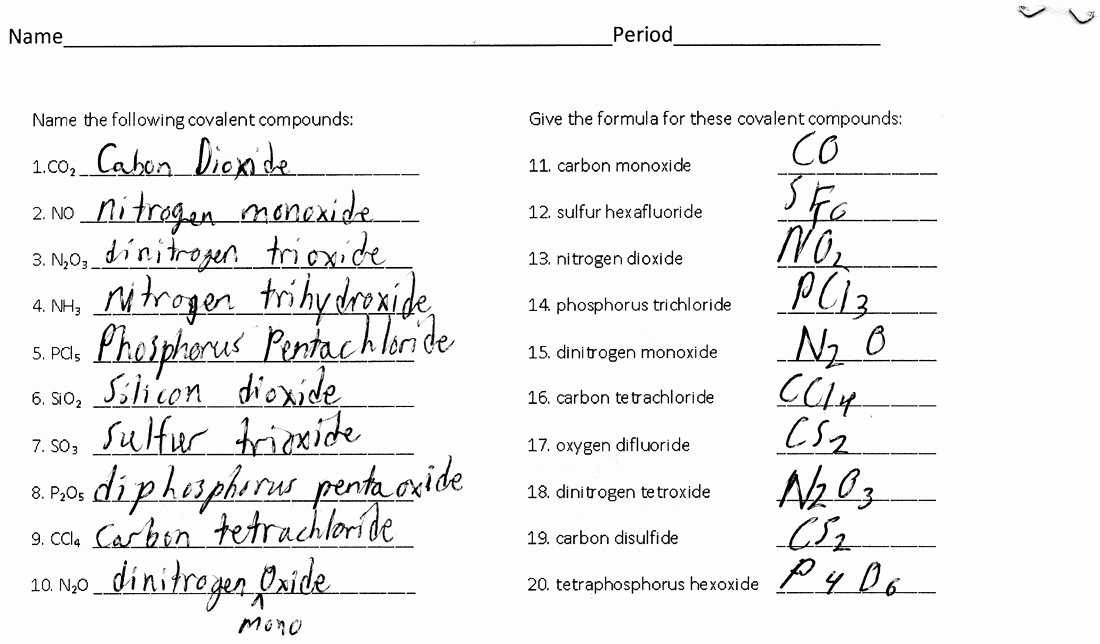 Name Period
Name the following covalent compounds:
1. CO₂ Cabon Dioxide
2. NO nitrogen monoxide
3. N₂O₃ dinitrogen trioxide
4. NH₃ nitrogen trihydroxide
5. PCl₅ Phosphorus Pentachloride
6. SiO₂ Silicon dioxide
7. SO₃ Sulfur trioxide
8. P₂O₅ diphosphorus pentaoxide
9. CCl₄ Carbon tetrachloride
10. N₂O dinitrogen Oxide
^
mono
Give the formula for these covalent compounds:
11. carbon monoxide CO
12. sulfur hexafluoride SF₆
13. nitrogen dioxide NO₂
14. phosphorus trichloride PCl₃
15. dinitrogen monoxide N₂O
16. carbon tetrachloride CCl₄
17. oxygen difluoride CS₂
18. dinitrogen tetroxide N₂O₃
19. carbon disulfide CS₂
20. tetraphosphorus hexoxide P₄O₆